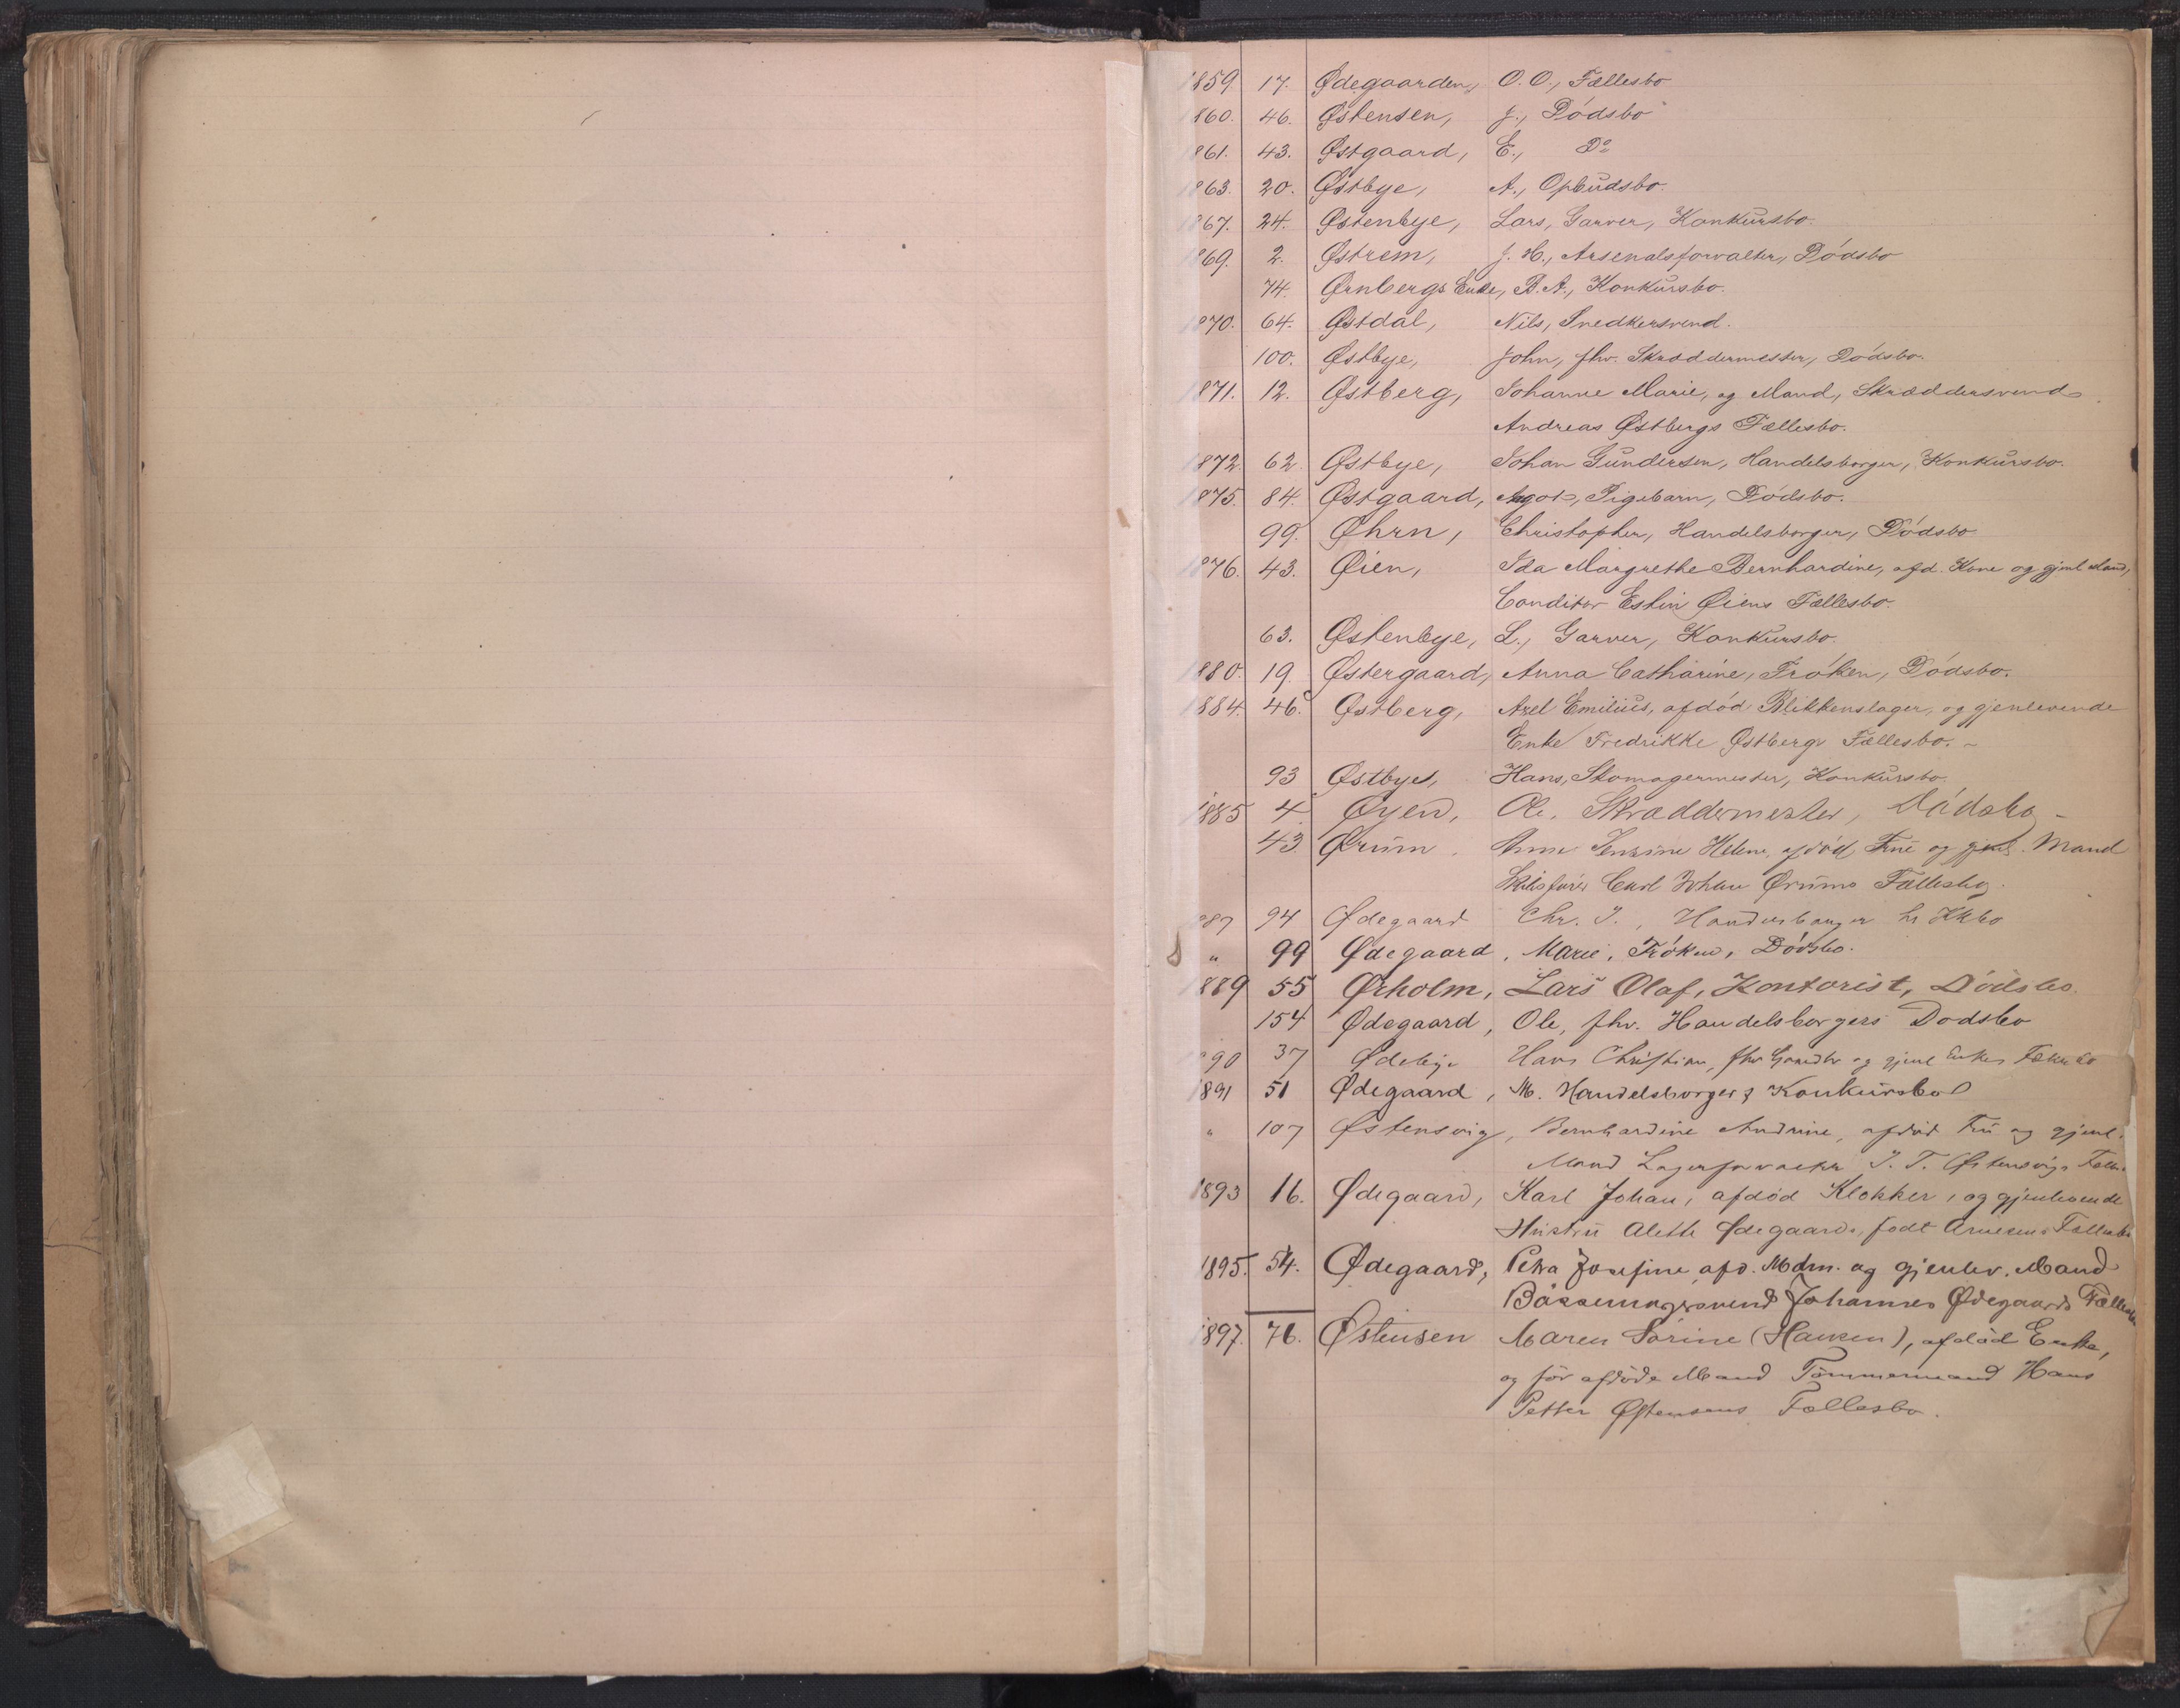 1859. 17. Ødegaarden, O. O., Fællesbo
1860. 46. Østensen, J., Dødsbo
1861. 43. Østgaard, E., Do
1863. 20. Østbye, A., Opbudsbo.
1867. 24. Østenbye, Lars, Garver, Konkursbo.
1869. 2. Østrem, J. H., Arsenalsforvalter, Dødsbo
74. Ørnbergs Enke, B. A., Konkursbo.
1870. 64. Østdal, Nils, Snedkersvend.
100. Østbye, John, fhv. Skræddermester, Dødsbo.
1871. 12. Østberg, Johanne Marie, og Mand, Skræddersvend
Andreas Østbergs Fællesbo.
1872. 62. Østbye, Johan Gundersen, Handelsborger, Konkursbo.
1875. 84. Østgaard, Agot, Pigebarn, Dødsbo.
99. Øhrn, Christopher, Handelsborger, Dødsbo
1876. 43. Øien, Ida Margrethe Bernhardine, afd. Kone og gjenl. Mand,
Conditor Estin Øiens Fællesbo.
63. Østenbye, L., Garver, Konkursbo.
1880. 19. Østergaard, Anna Catharine, Frøken, Dødsbo.
1884. 46. Østberg, Axel Emilius, afdød Blikkenslager, og gjenlevende
Enke Fredrikke Østbergs Fællesbo. -
93 Østbye, Hans, Skomagermester, Konkursbo
1885 4. Øyen, Ole, Skræddermester, Dødsbo -
43. Ørum. Anne Helene, afdød Frue og gjenl. Mand
Carl Johan Ørums Fællesbo.
1887 94 Ødegaard Chr. J., Handelsborger Kkbo
" 99 Ødegaard, Marie, Frøken, Dødsbo.
1889 55 Ørholm, Lars Olaf, Kontorist, Dødsbo.
154 Ødegaard, Ole, fhv. Handelsborgers Dødsbo
1890 37 Ødeby Hans Christian, fhv. og gjenl Enkes
1891 51 Ødegaard, M. Handelsborgers Konkursbo
" 107 Østensvig, Bernhardine Andrine, afdød Fru og gjenl.
Mand Lagerforvalter J. T. Østensvigs
1893 16. Ødegaard, Karl Johan, afdød Klokker, og gjenlevende
Hustru Alette Ødegaards, født Arnesens Fællesbo
1895. 54. Ødegaard, Petra Josefine afd. Mdm. og gjenlev. Mand
Bøssemagersvend Johannes Ødegaards Fællesbo
1897. 76. Østensen Maren Sørine (Hansen), afdød Enke,
og før afdøde Mand Tømmermand Hans
Petter Østensens Fællesbo.